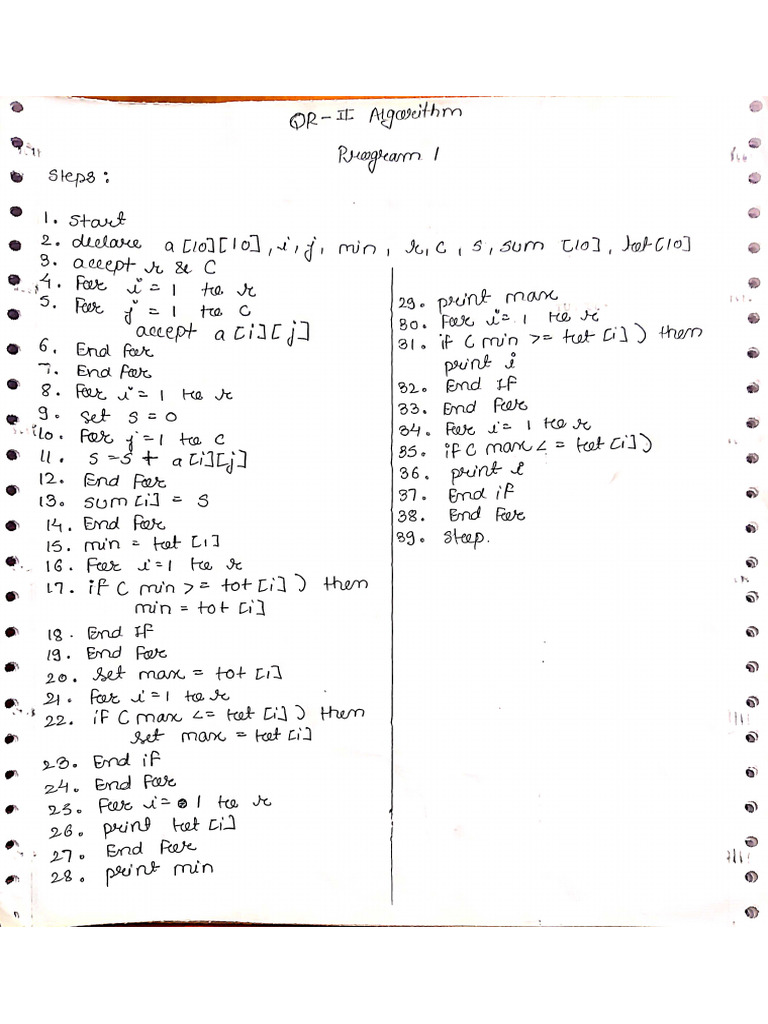 QR-II Algorithm
Program 1
Steps:
1. Start
2. declare a[10][10], i, j, min, r, c, s, sum [10], tot[10]
3. accept r & c
4. For i = 1 to r
5. For j = 1 to c
accept a[i][j]
6. End for
7. End for
8. For i = 1 to r
9. set s = 0
10. For j=1 to c
11. s=s + a[i][j]
12. End For
13. sum[i] = s
14. End For
15. min = tot[1]
16. For i=1 to r
17. if ( min >= tot[i]) then
min = tot[i]
18. End If
19. End For
20. set max = tot[1]
21. for i=1 to r
22. if ( max <= tot[i]) then
set max = tot[i]
23. End if
24. End For
25. For i= 1 to r
26. print tot[i]
27. End For
28. print min
29. print max
30. For i= 1 to r
31. if ( min >= tot[i]) then
print i
32. End If
33. End For
34. For i= 1 to r
35. if ( max <= tot[i])
36. print i
37. End if
38. End For
39. Stop.